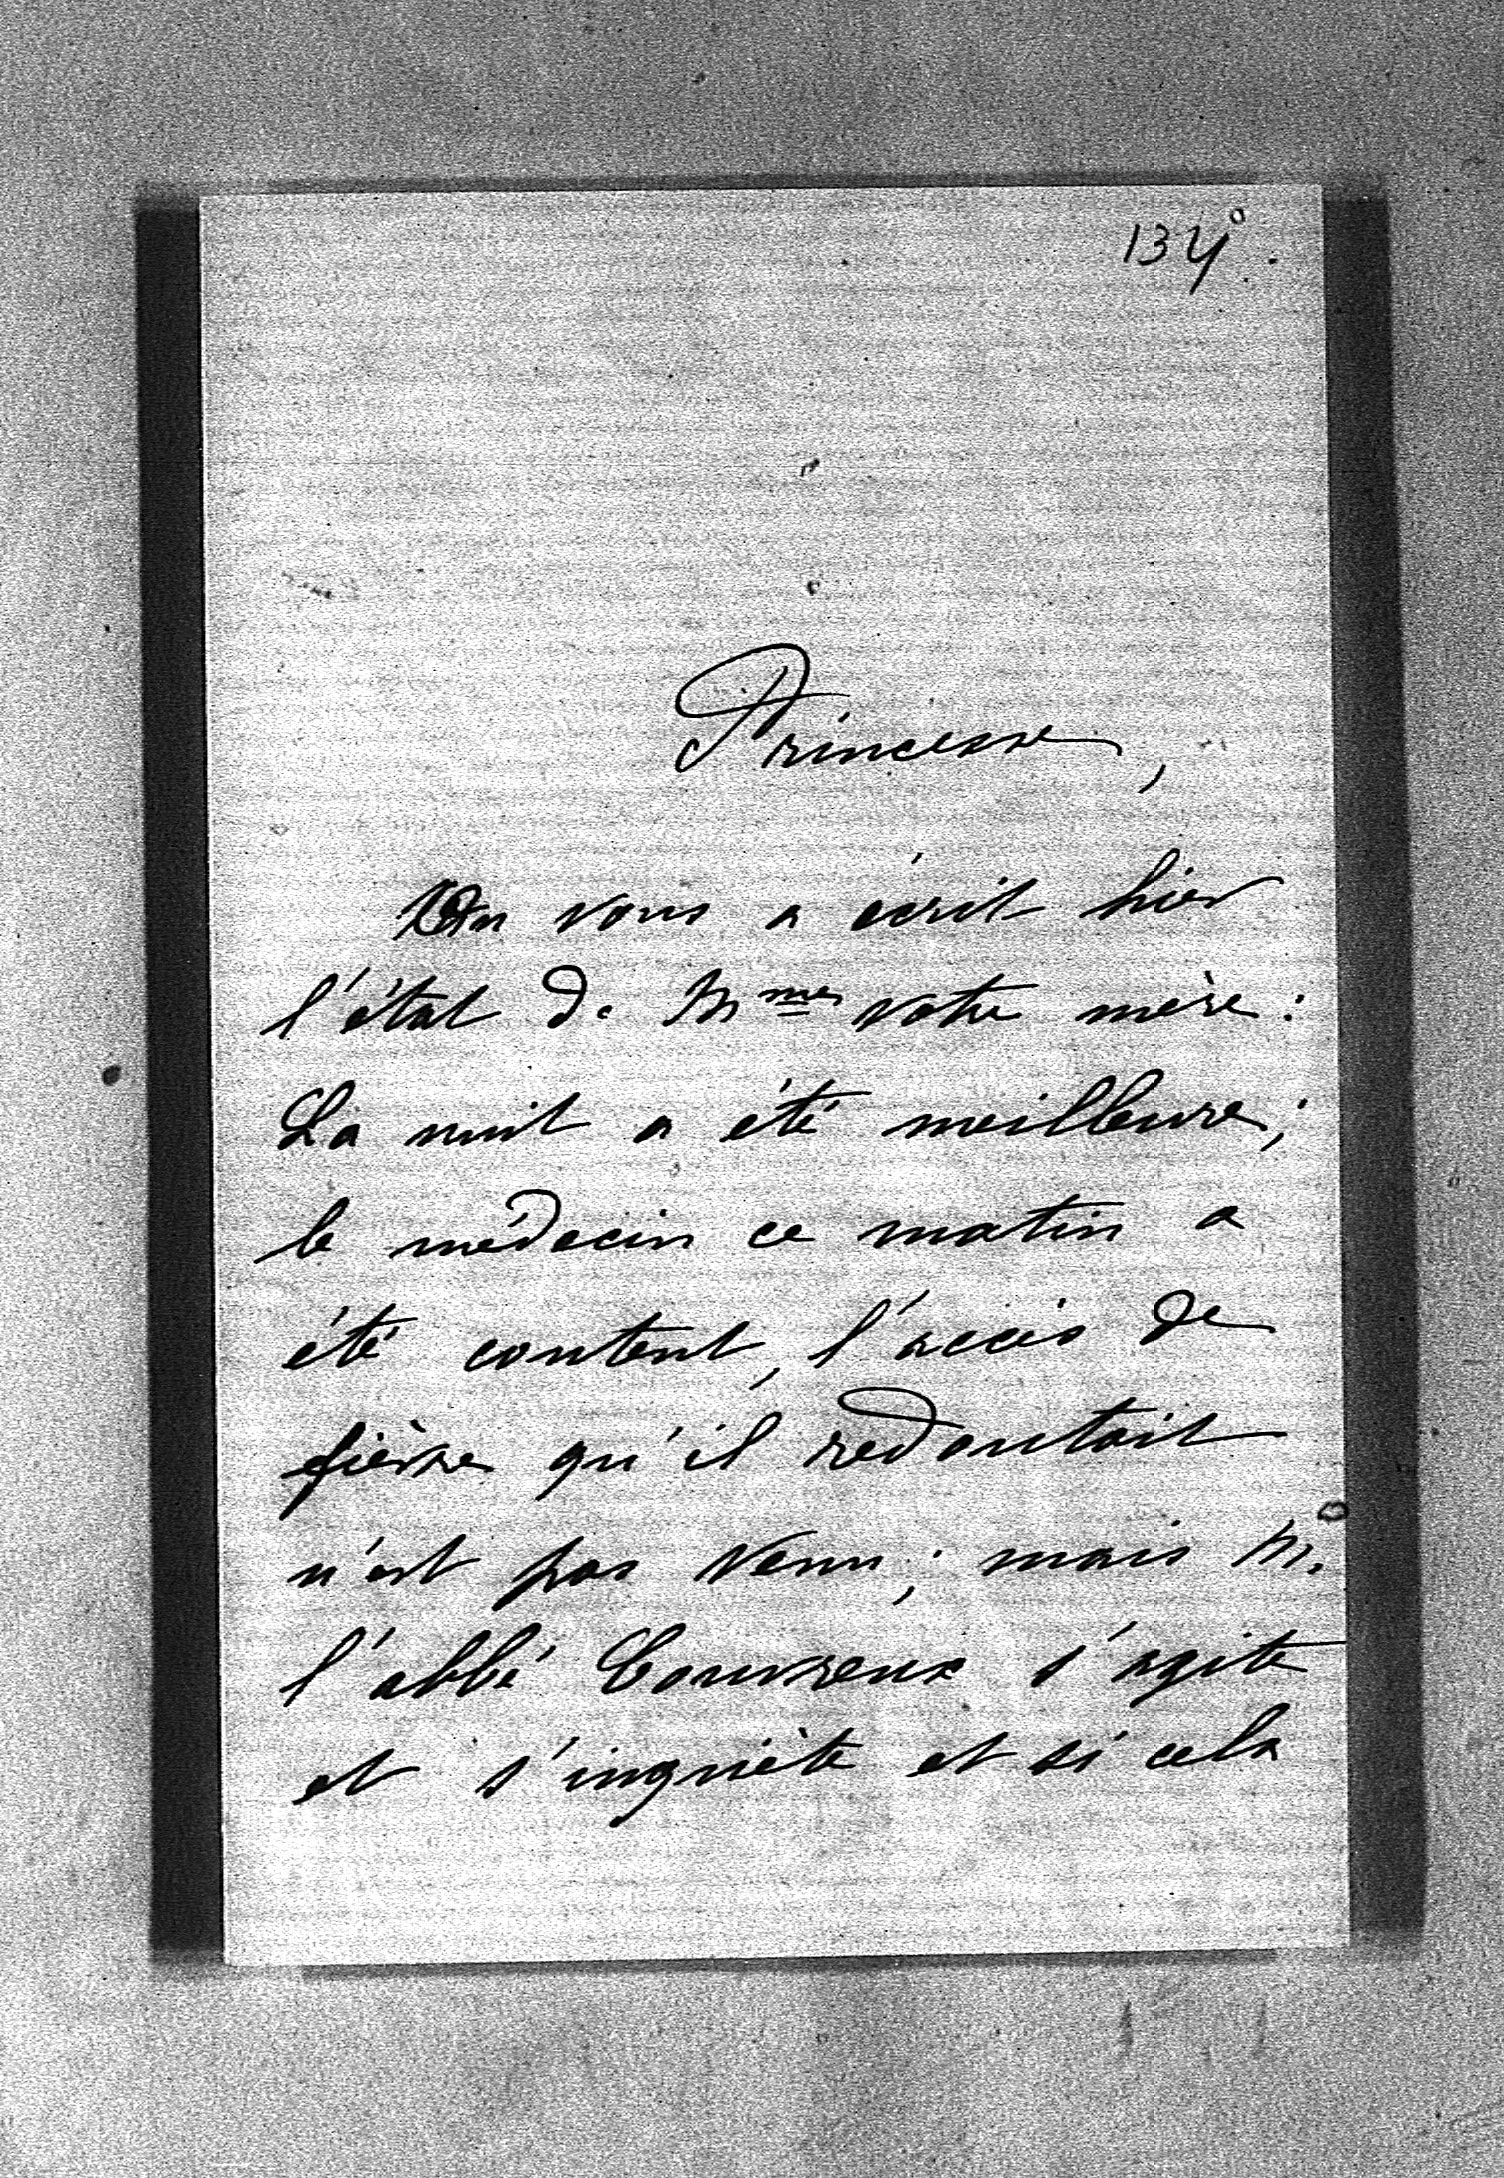 Princesse,
On vous a écrit hier
l'état de Mme votre mère :
La nuit a été meilleure ;
le médecin ce matin a
été content, l'accès de
fièvre qu'il redoutait
n'est pas venu ; mais M.
l'abbé Couvreux s'agite
et s'inquiète et si cela